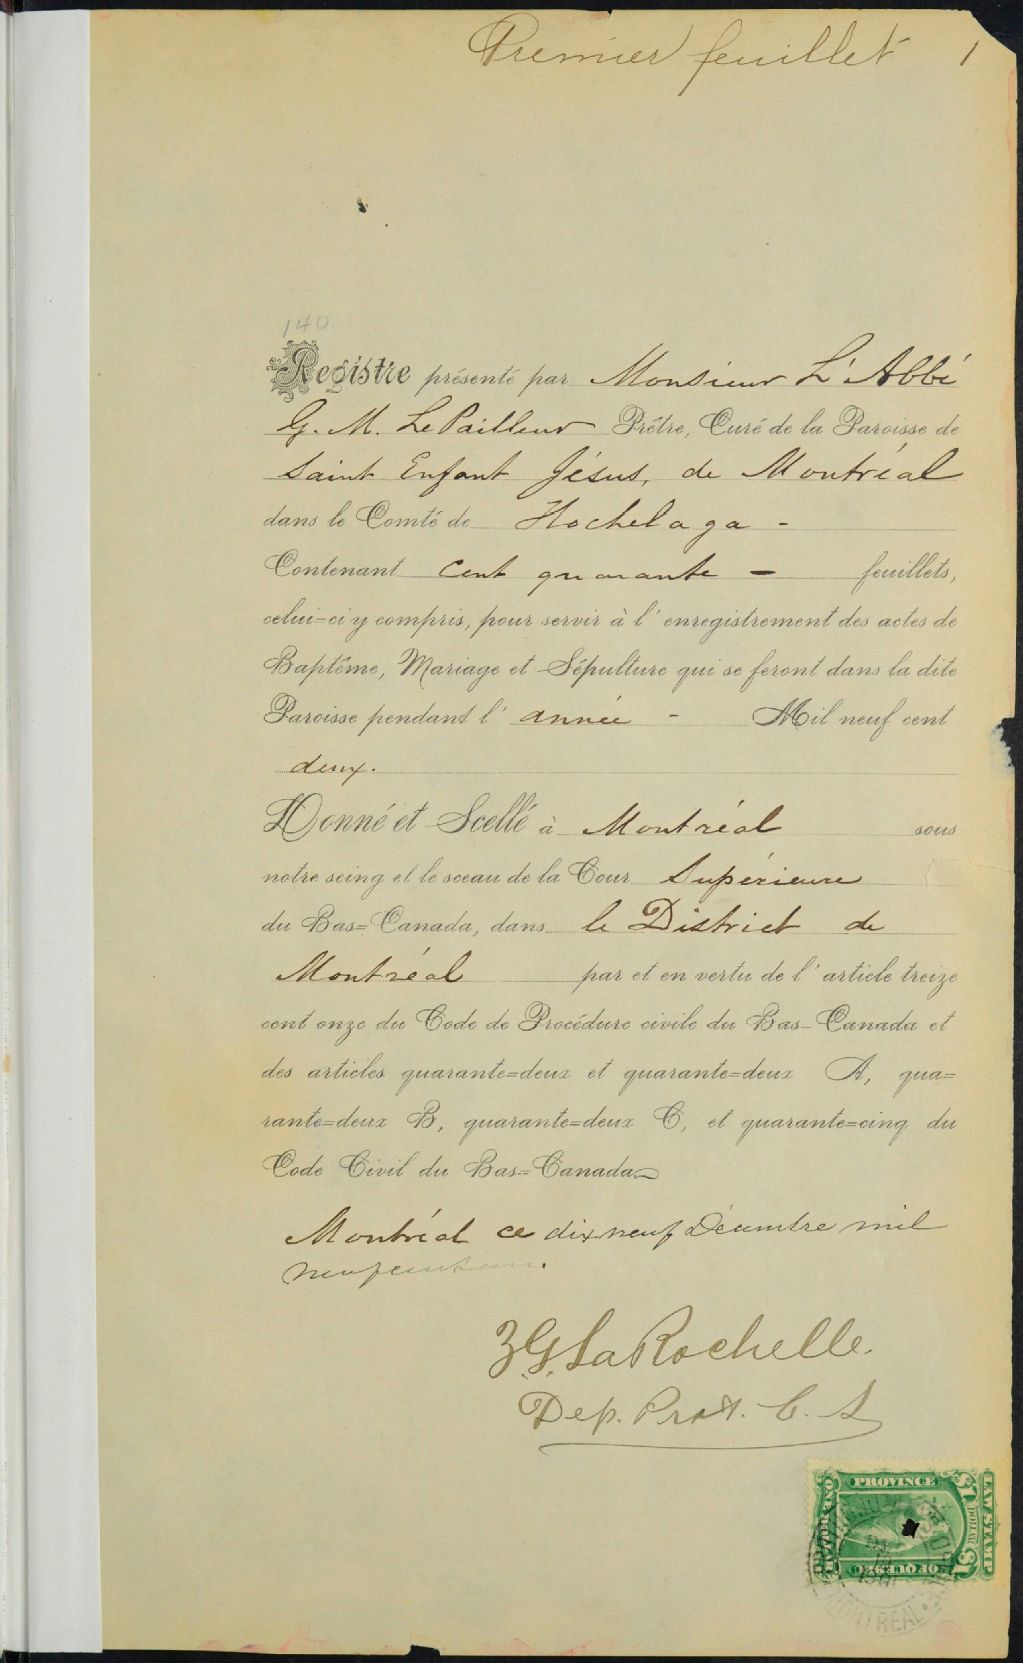 Premier feuillet 1
140
Registre présenté par Monsieur L'Abbé
G. M. LePailleur Prêtre, Curé de la Paroisse de
Saint Enfant Jésus, de Montréal
dans le Comté de Hochelaga -
Contenant cent quarante - feuillets,
celui=ci y compris, pour servir à l'enregistrement des actes de
Baptême, Mariage et Sépulture qui se feront dans la dite
Paroisse pendant l'année - Mil neuf cent
deux.
Donné et Scellé à Montréal sous
notre seing et le sceau de la Cour Supérieure
du Bas=Canada, dans le District de
Montréal par et en vertu de l'article treize
cent onze du Code de Procédure civile du Bas-Canada et
des articles quarante=deux et quarante=deux A, qua=
rante=deux B, quarante=deux C, et quarante=cinq du
Code Civil du Bas=Canada
Montréal ce dixneuf Décembre mil
neufcentun.
Z.G. LaRochelle.
Dep. Prot. C. S
PROVINCE
OF QUEBEC
ONE DOLLAR
LAW STAMP
$1 DOLLAR $1
MONTREAL